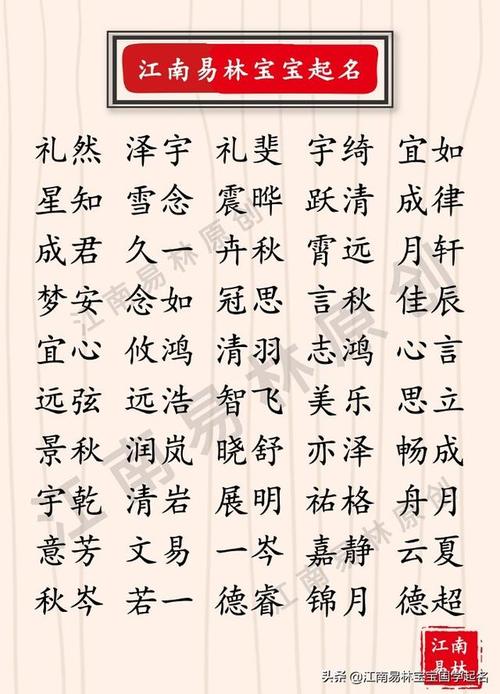 江南易林宝宝起名
礼然 泽宇 礼斐 宇绮 宜如
星知 雪念 震晔 跃清 成律
成君 久一 卉秋 霄远 月轩
梦安 念如 冠思 言秋 佳辰
宜心 攸鸿 清羽 志鸿 心言
远弦 远浩 智飞 美乐 思立
景秋 润岚 晓舒 亦泽 畅成
宇乾 清岩 展明 祐格 舟月
意芳 文易 一岑 嘉静 云夏
秋岑 若一 德睿 锦月 德超
江南易林原创
江南易林原创
江南易林原创
江南
易林
头条 @江南易林宝宝国学起名